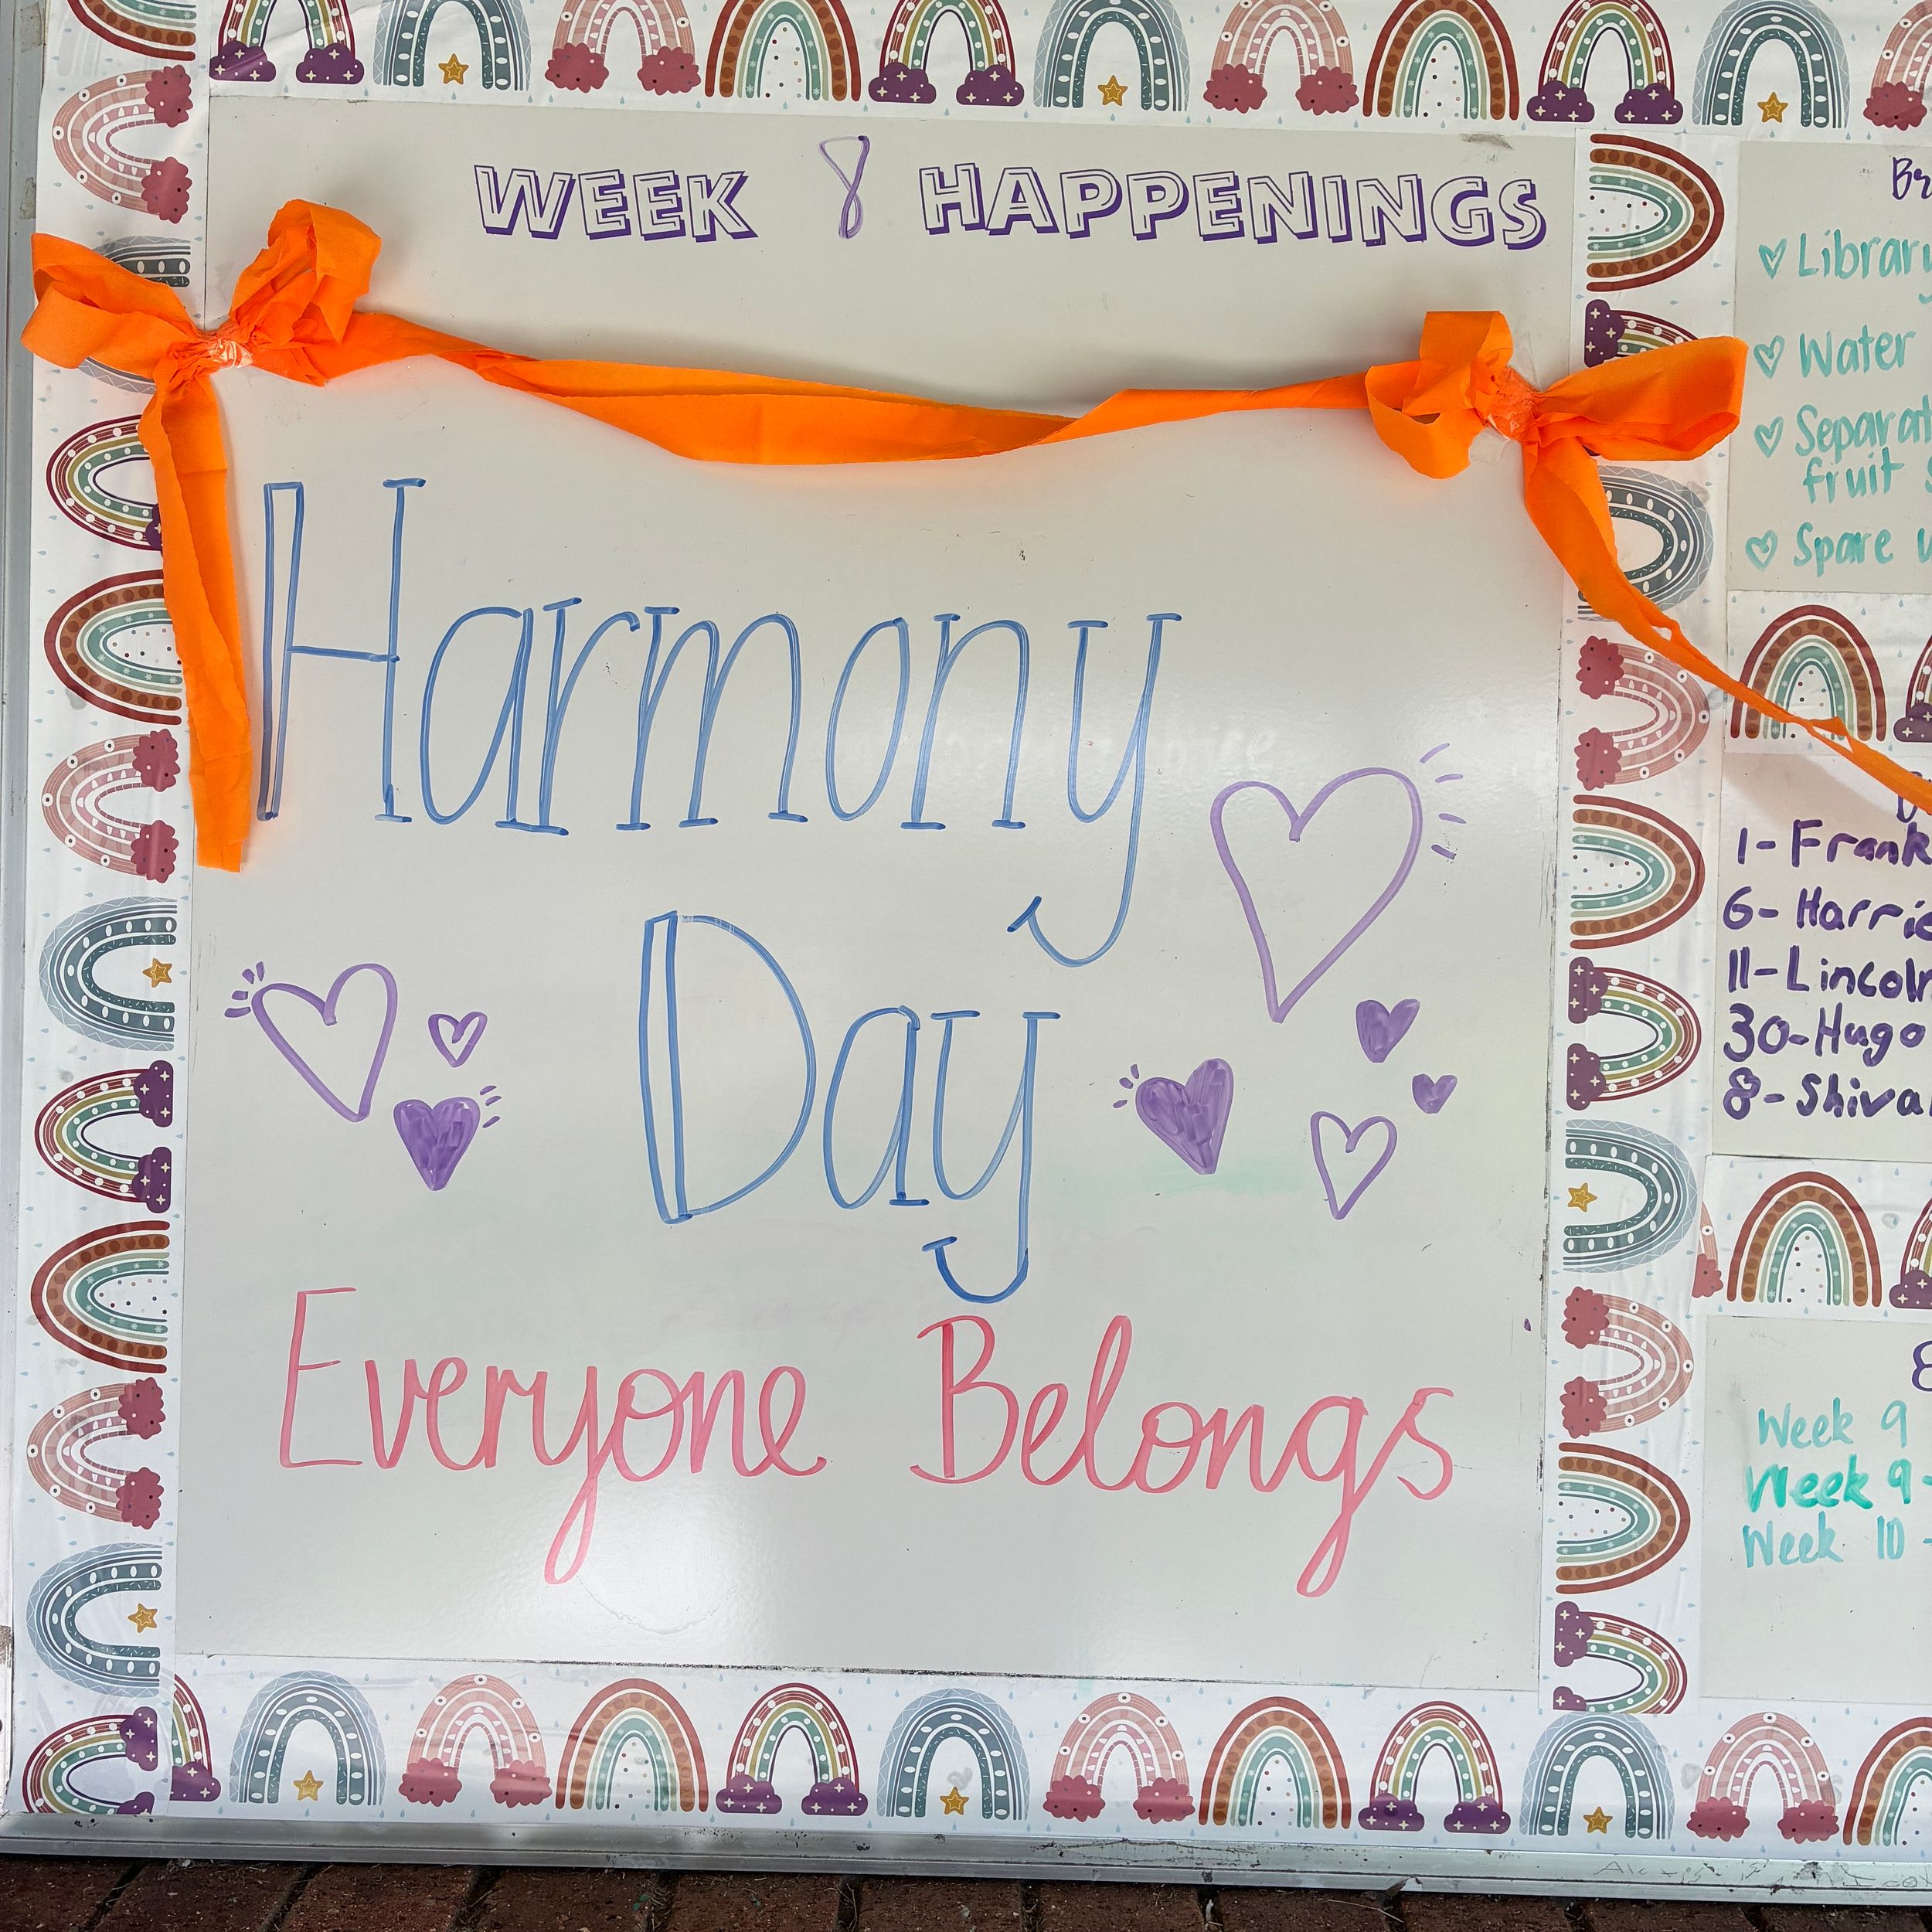 WEEK 8 HAPPENINGS
Harmony
Day
Everyone Belongs
Library
Water
fruit
Spare
1-Frank
6-
11-Lincoln
30-Hugo
8-
Week 9
Week 9 -
Week 10 -